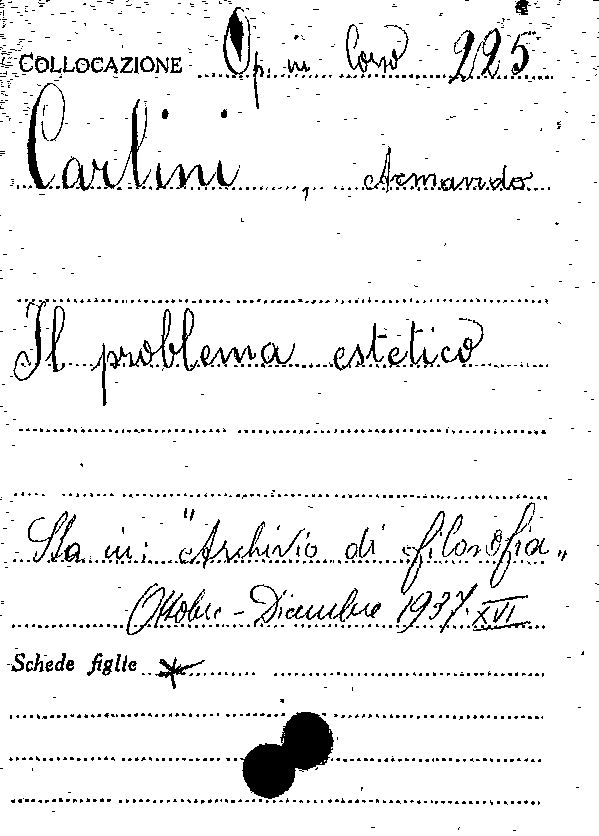 COLLOCAZIONE Op. in Corso 225
Carlini, Armando
Il problema estetico
Sta in: "Archivio di filosofia„
Ottobre - Dicembre 1937. XVI
Schede figlie *